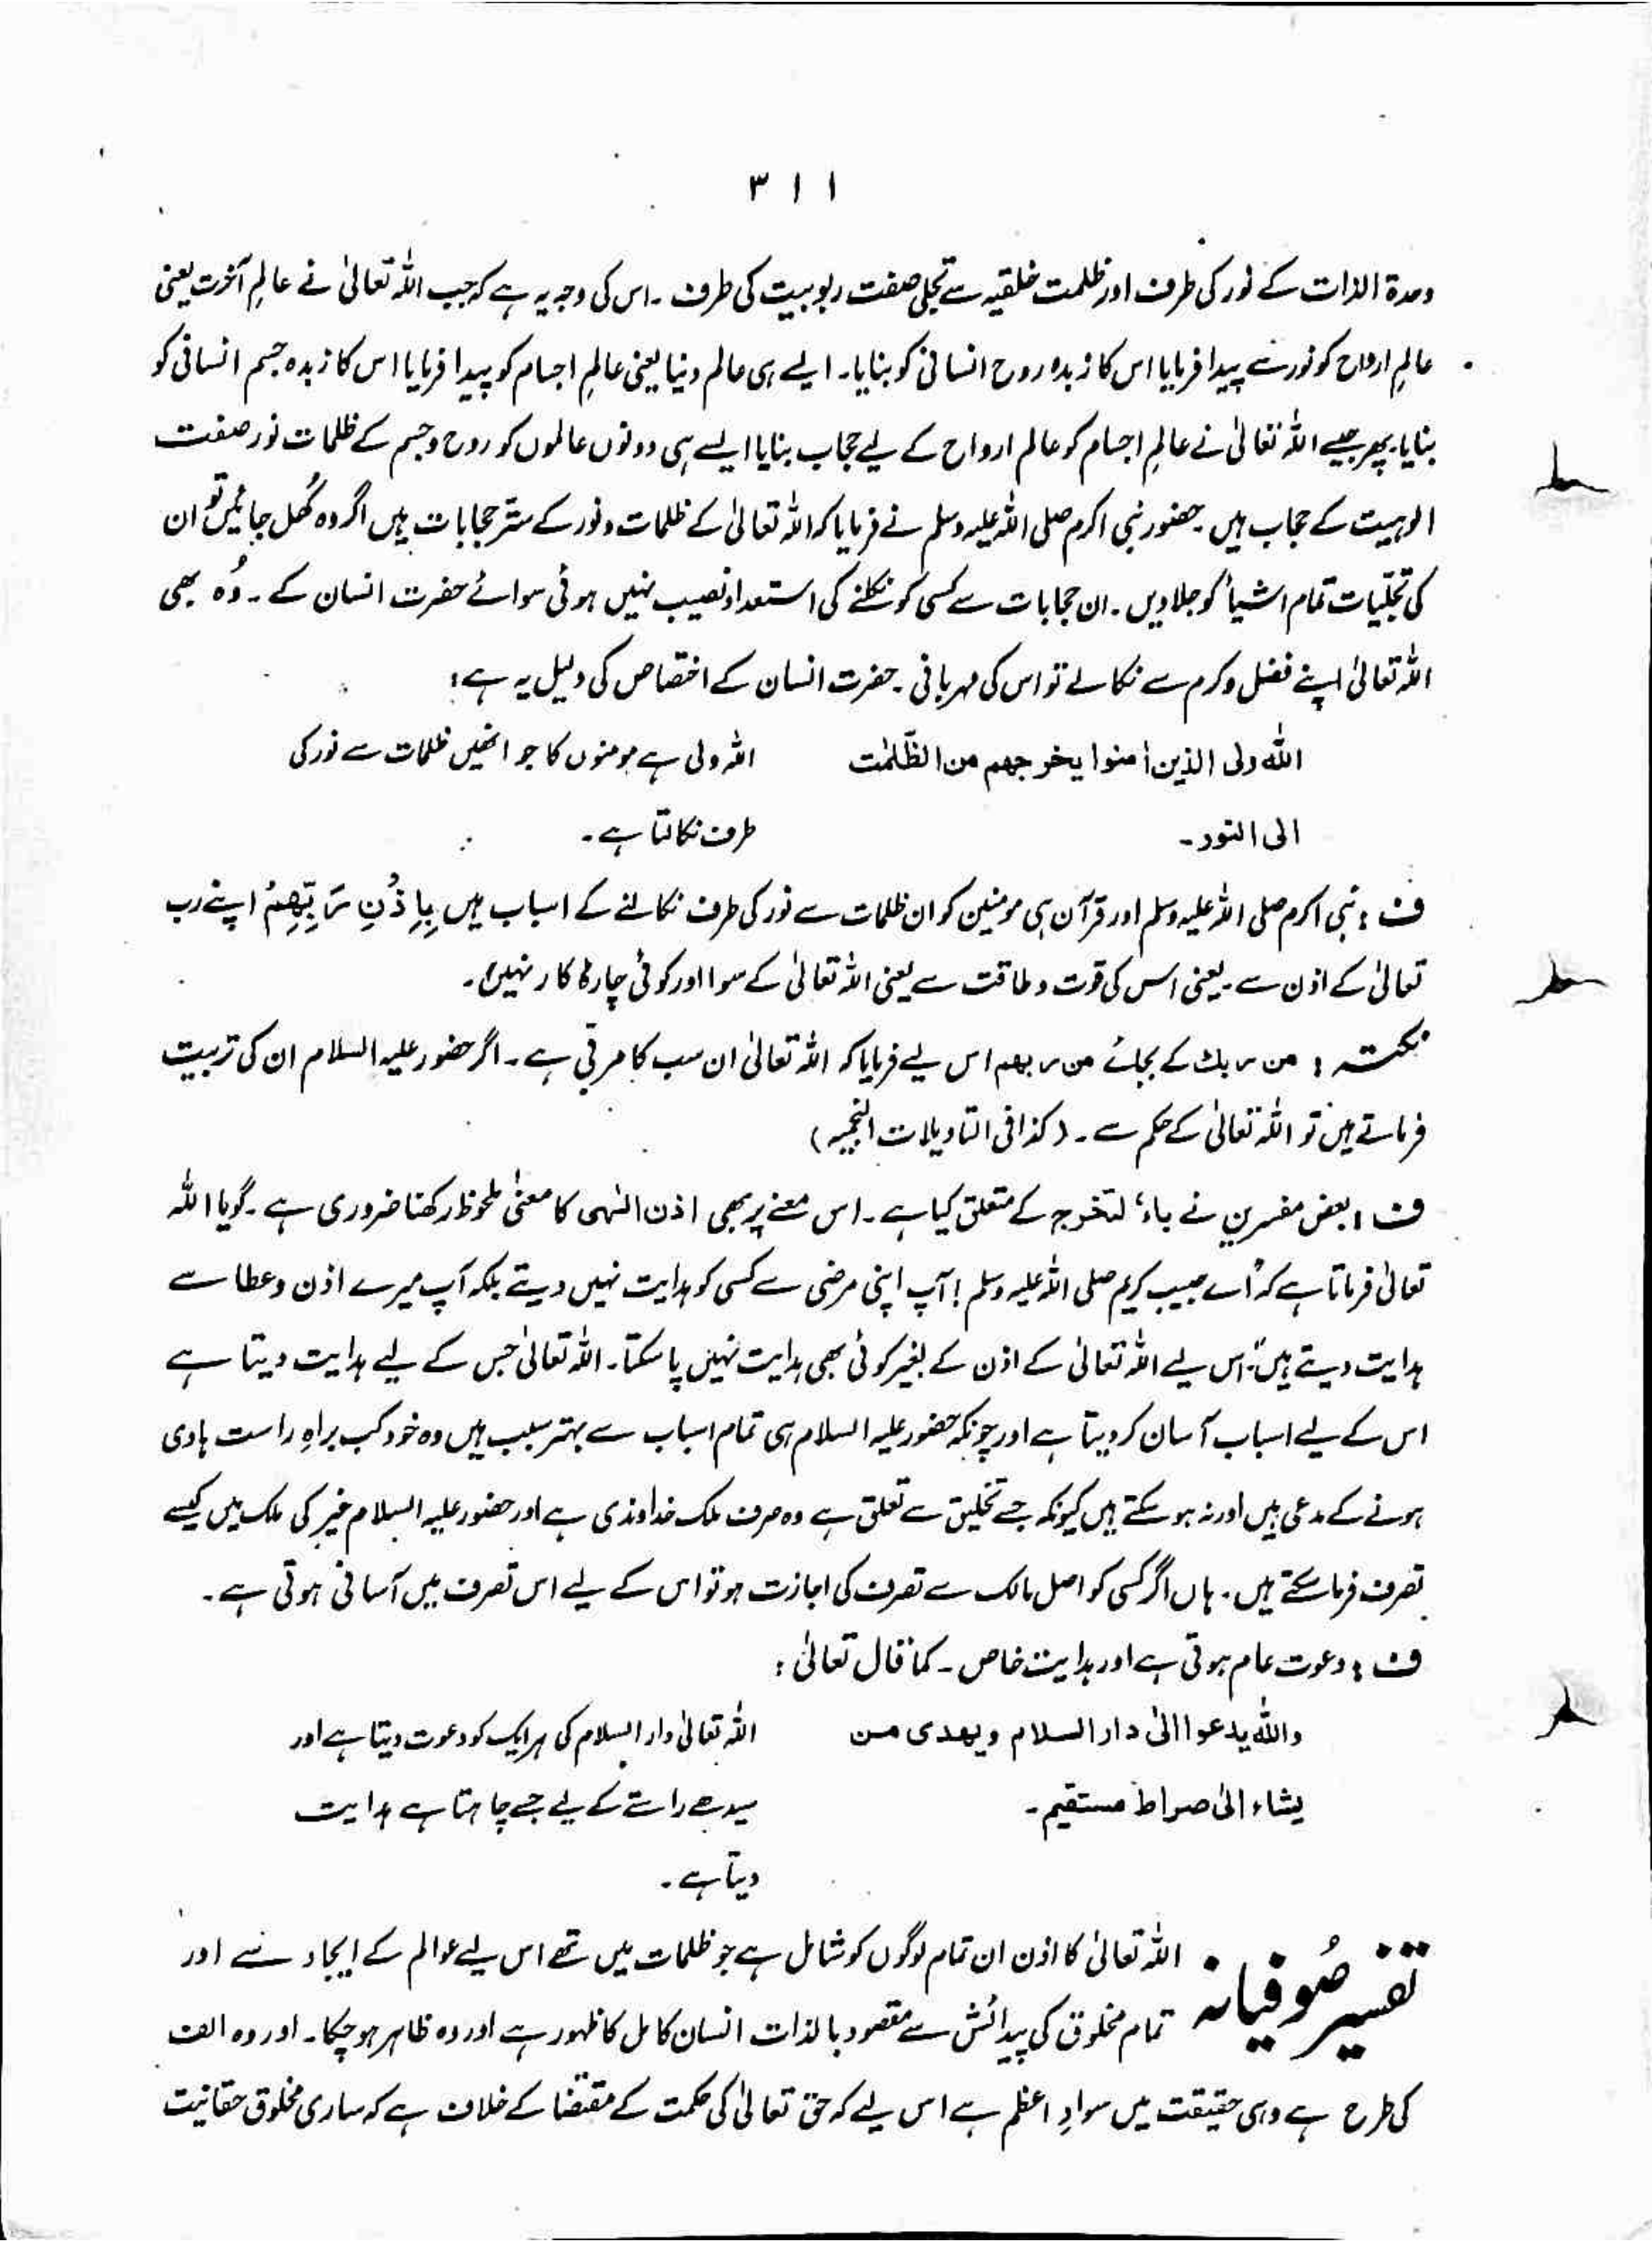 ۳۱۱
وحدۃ الذات کے نور کی طرف اور ظلمت خلقیہ سے تجلی صفت ربوبیت کی طرف ۔ اس کی وجہ یہ ہے کہ جب اللہ تعالیٰ نے عالمِ آخرت یعنی
عالمِ ارواح کو نور سے پیدا فرمایا اس کا زبدہ روح انسانی کو بنایا۔ ایسے ہی عالم دنیا یعنی عالمِ اجسام کو پیدا فرمایا اس کا زبدہ جسم انسانی کو
بنایا۔ پھر جیسے اللہ تعالیٰ نے عالمِ اجسام کو عالم ارواح کے لیے حجاب بنایا ایسے ہی دونوں عالموں کو روح و جسم کے ظلمات نور صفت
الوہیت کے حجاب ہیں ۔ حضور نبی اکرم صلی اللہ علیہ وسلم نے فرمایا کہ اللہ تعالیٰ کے ظلمات و نور کے ستّر حجابات ہیں اگر وہ کُھل جائیں تو ان
کی تجلّیات تمام اشیأ کو جلا دیں ۔ ان حجابات سے کسی کو نکلنے کی استعداد نصیب نہیں ہوئی سوائے حضرت انسان کے ۔ وُہ بھی
اللہ تعالیٰ اپنے فضل و کرم سے نکالے تو اس کی مہربانی ۔ حضرت انسان کے اختصاص کی دلیل یہ ہے :
اللّٰہ ولی الذین اٰمنوا یخرجھم من الظّلمٰت
الی النور ۔
اللہ ولی ہے مومنوں کا جو انھیں ظلمات سے نور کی
طرف نکالتا ہے ۔
ف : نبی اکرم صلی اللہ علیہ وسلم اور قرآن ہی مومنین کو ان ظلمات سے نور کی طرف نکالنے کے اسباب ہیں بِاِذْنِ رَبِّھِمْ اپنے رب
تعالیٰ کے اذن سے ۔ یعنی اس کی قوت و طاقت سے یعنی اللہ تعالیٰ کے سوا اور کوئی چارۂ کار نہیں ۔
نکتہ : من ربك کے بجائے من ربھم اس لیے فرمایا کہ اللہ تعالیٰ ان سب کا مربّی ہے ۔ اگر حضور علیہ السلام ان کی تربیت
فرماتے ہیں تو اللہ تعالیٰ کے حکم سے ۔ (کذا فی التاویلات النجمیہ)
ف : بعض مفسرین نے باء، لتخرج کے متعلق کیا ہے ۔ اس معنے پر بھی اذن الٰہی کا معنیٰ ملحوظ رکھنا ضروری ہے ۔ گویا اللہ
تعالیٰ فرماتا ہے کہ "اے حبیب کریم صلی اللہ علیہ وسلم ! آپ اپنی مرضی سے کسی کو ہدایت نہیں دیتے بلکہ آپ میرے اذن و عطا سے
ہدایت دیتے ہیں"۔ اس لیے اللہ تعالیٰ کے اذن کے بغیر کوئی بھی ہدایت نہیں پا سکتا۔ اللہ تعالیٰ جس کے لیے ہدایت دیتا ہے
اس کے لیے اسباب آسان کر دیتا ہے اور چونکہ حضور علیہ السلام ہی تمام اسباب سے بہتر سبب ہیں وہ خود کب براہِ راست ہادی
ہونے کے مدعی ہیں اور نہ ہو سکتے ہیں کیونکہ جسے تخلیق سے تعلق ہے وہ صرف ملک خداوندی ہے اور حضور علیہ السلام غیر کی ملک میں کیسے
تصرف فرما سکتے ہیں ۔ ہاں اگر کسی کو اصل مالک سے تصرف کی اجازت ہو تو اس کے لیے اس تصرف میں آسانی ہوتی ہے ۔
ف : دعوت عام ہوتی ہے اور ہدایت خاص ۔ کما قال تعالیٰ :
واللّٰہ یدعوا الیٰ دار السلام ویھدی من
یشاء الیٰ صراط مستقیم ۔
اللہ تعالیٰ دار السلام کی ہر ایک کو دعوت دیتا ہے اور
سیدھے راستے کے لیے جسے چاہتا ہے ہدایت
دیتا ہے ۔
تفسیر صُوفیانہ اللہ تعالیٰ کا اذن ان تمام لوگوں کو شامل ہے جو ظلمات میں تھے اس لیے عوالم کے ایجاد سے اور
تمام مخلوق کی پیدائش سے مقصود بالذات انسان کامل کا ظہور ہے اور وہ ظاہر ہو چکا ۔ اور وہ الف
کی طرح ہے وہی حقیقت میں سوادِ اعظم ہے اس لیے کہ حق تعالیٰ کی حکمت کے مقتضا کے خلاف ہے کہ ساری مخلوق حقانیت